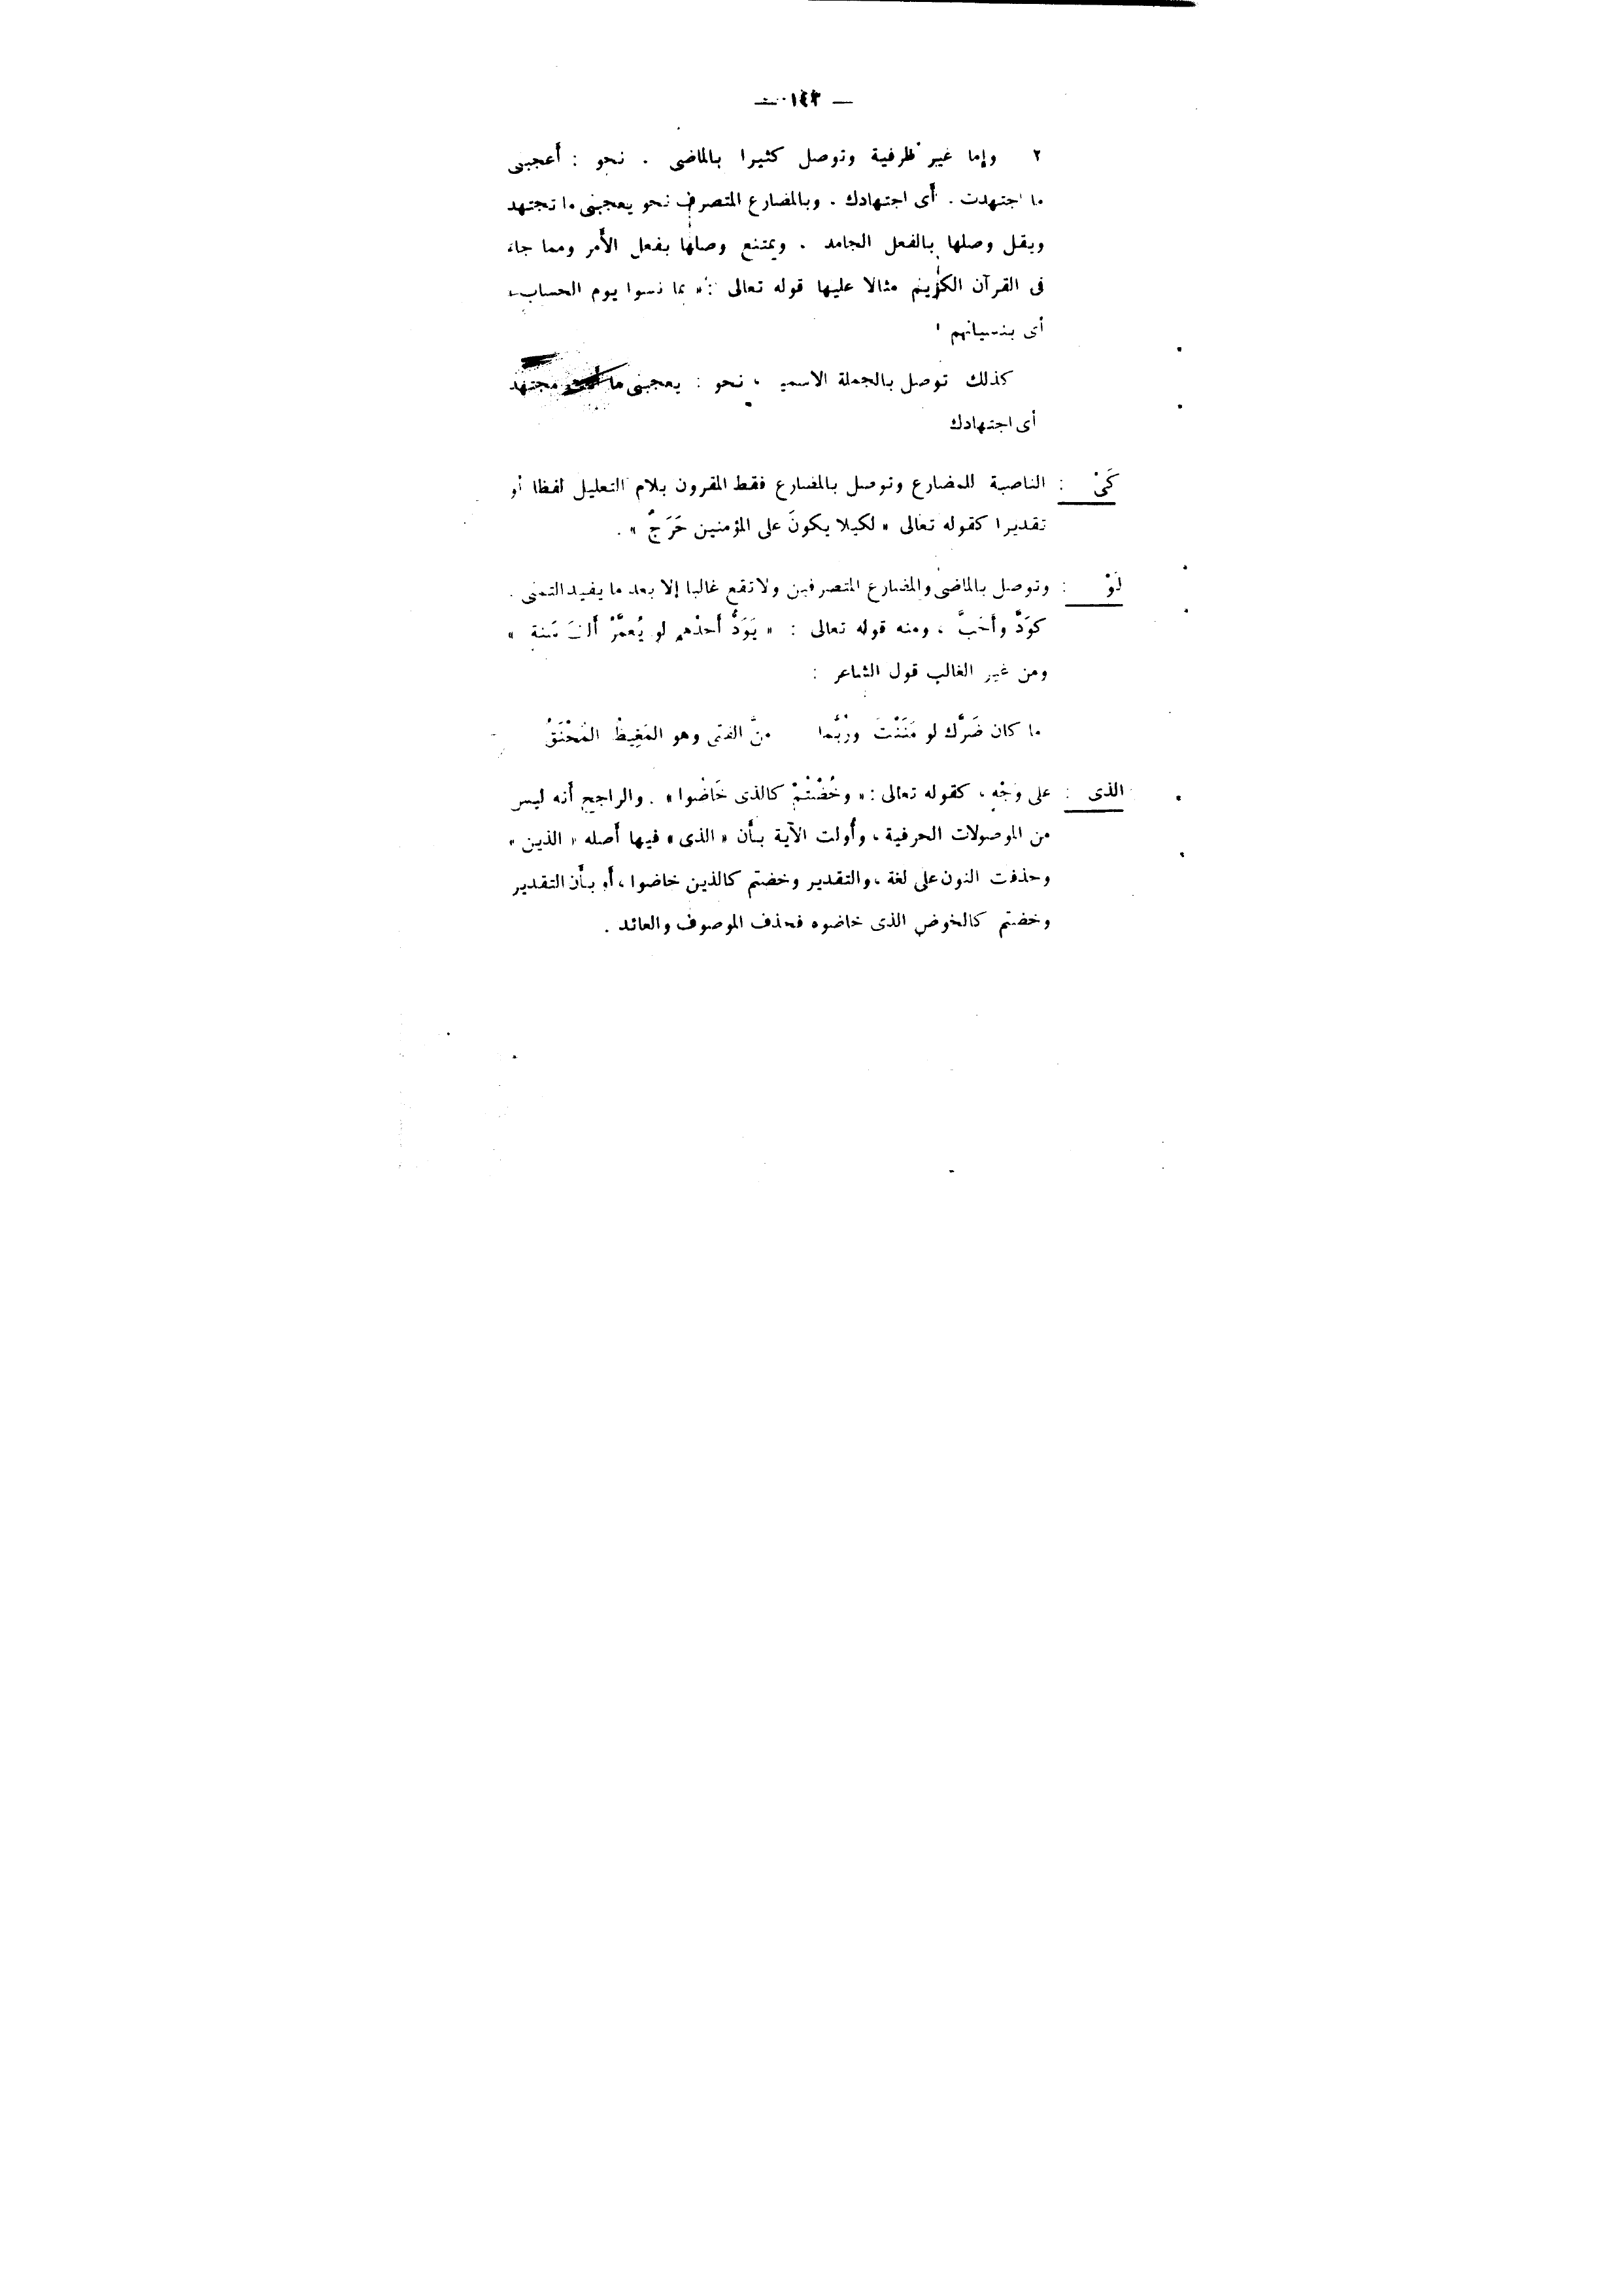 — ١٤٣ —
٢ وإما غير ظرفية وتوصل كثيرا بالماضى . نحو : أعجبنى
ما اجتهدت . أى اجتهادك . وبالمضارع المتصرف نحو يعجبنى ما تجتهد
ويقل وصلها بالفعل الجامد . ويمتنع وصلها بفعل الأمر ومما جاء
فى القرآن الكريم مثالا عليها قوله تعالى : « بما نسوا يوم الحساب »
أى بنسيانهم
كذلك توصل بالجملة الاسمية ، نحو : يعجبنى ما مجتهد
أى اجتهادك
كَىْ : الناصبة للمضارع وتوصل بالمضارع فقط المقرون بلام التعليل لفظا أو
تقديرا كقوله تعالى « لكيلا يكونَ على المؤمنين حَرَجٌ » .
لَوْ : وتوصل بالماضى والمضارع المتصرفين ولا تقع غالبا إلا بعد ما يفيد التمنى .
كوَدَّ وأحَبَّ ، ومنه قوله تعالى : « يَوَدُّ أحدُهم لو يُعمَّرُ ألفَ سَنة »
ومن غير الغالب قول الشاعر :
ما كان ضَرَّك لو مَنَنْتَ ورُبَّما منَّ الفتى وهو المَغِيظُ المُحْنَقُ
الذى : على وَجْهٍ ، كقوله تعالى : « وخُضْتُمْ كالذى خَاضُوا » . والراجح أنه ليس
من الموصولات الحرفية ، وأُولت الآية بأن « الذى » فيها أصله « الذين »
وحذفت النون على لغة ، والتقدير وخضتم كالذين خاضوا ، أو بأن التقدير
وخضتم كالخوض الذى خاضوه فحذف الموصوف والعائد .